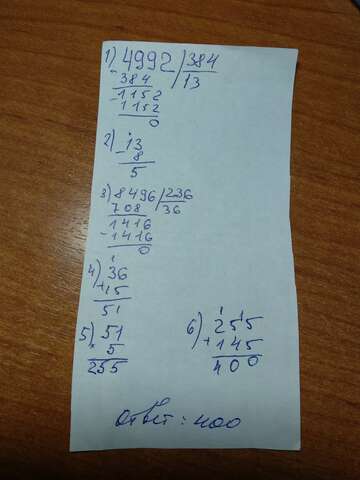 1) 4992 | 384
- 384 | 13
- 1152
1152
0
2) - 13
8
5
3) 8496 | 236
708 | 36
- 1416
1416
0
4) 1
36
+ 15
51
5) 51
× 5
255
6) 1 1
255
+ 145
400
ответ: 400